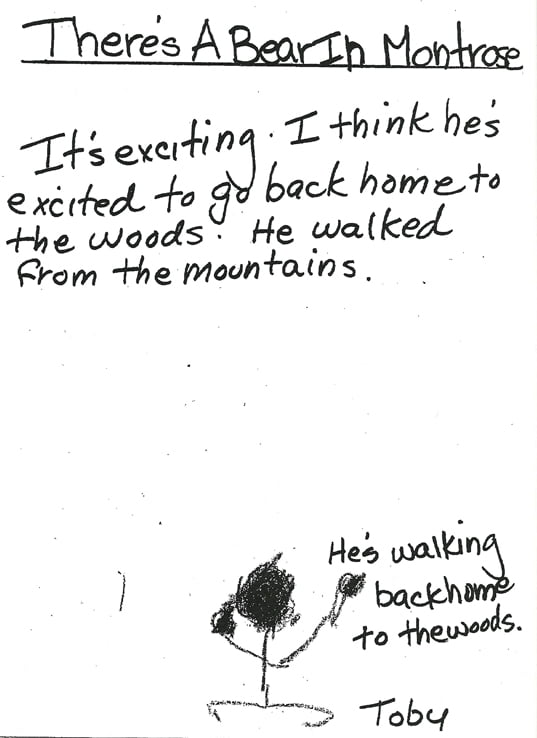 There's A Bear In Montrose
It's exciting. I think he's
excited to go back home to
the woods. He walked
from the mountains.
He's walking
back home
to the woods.
Toby